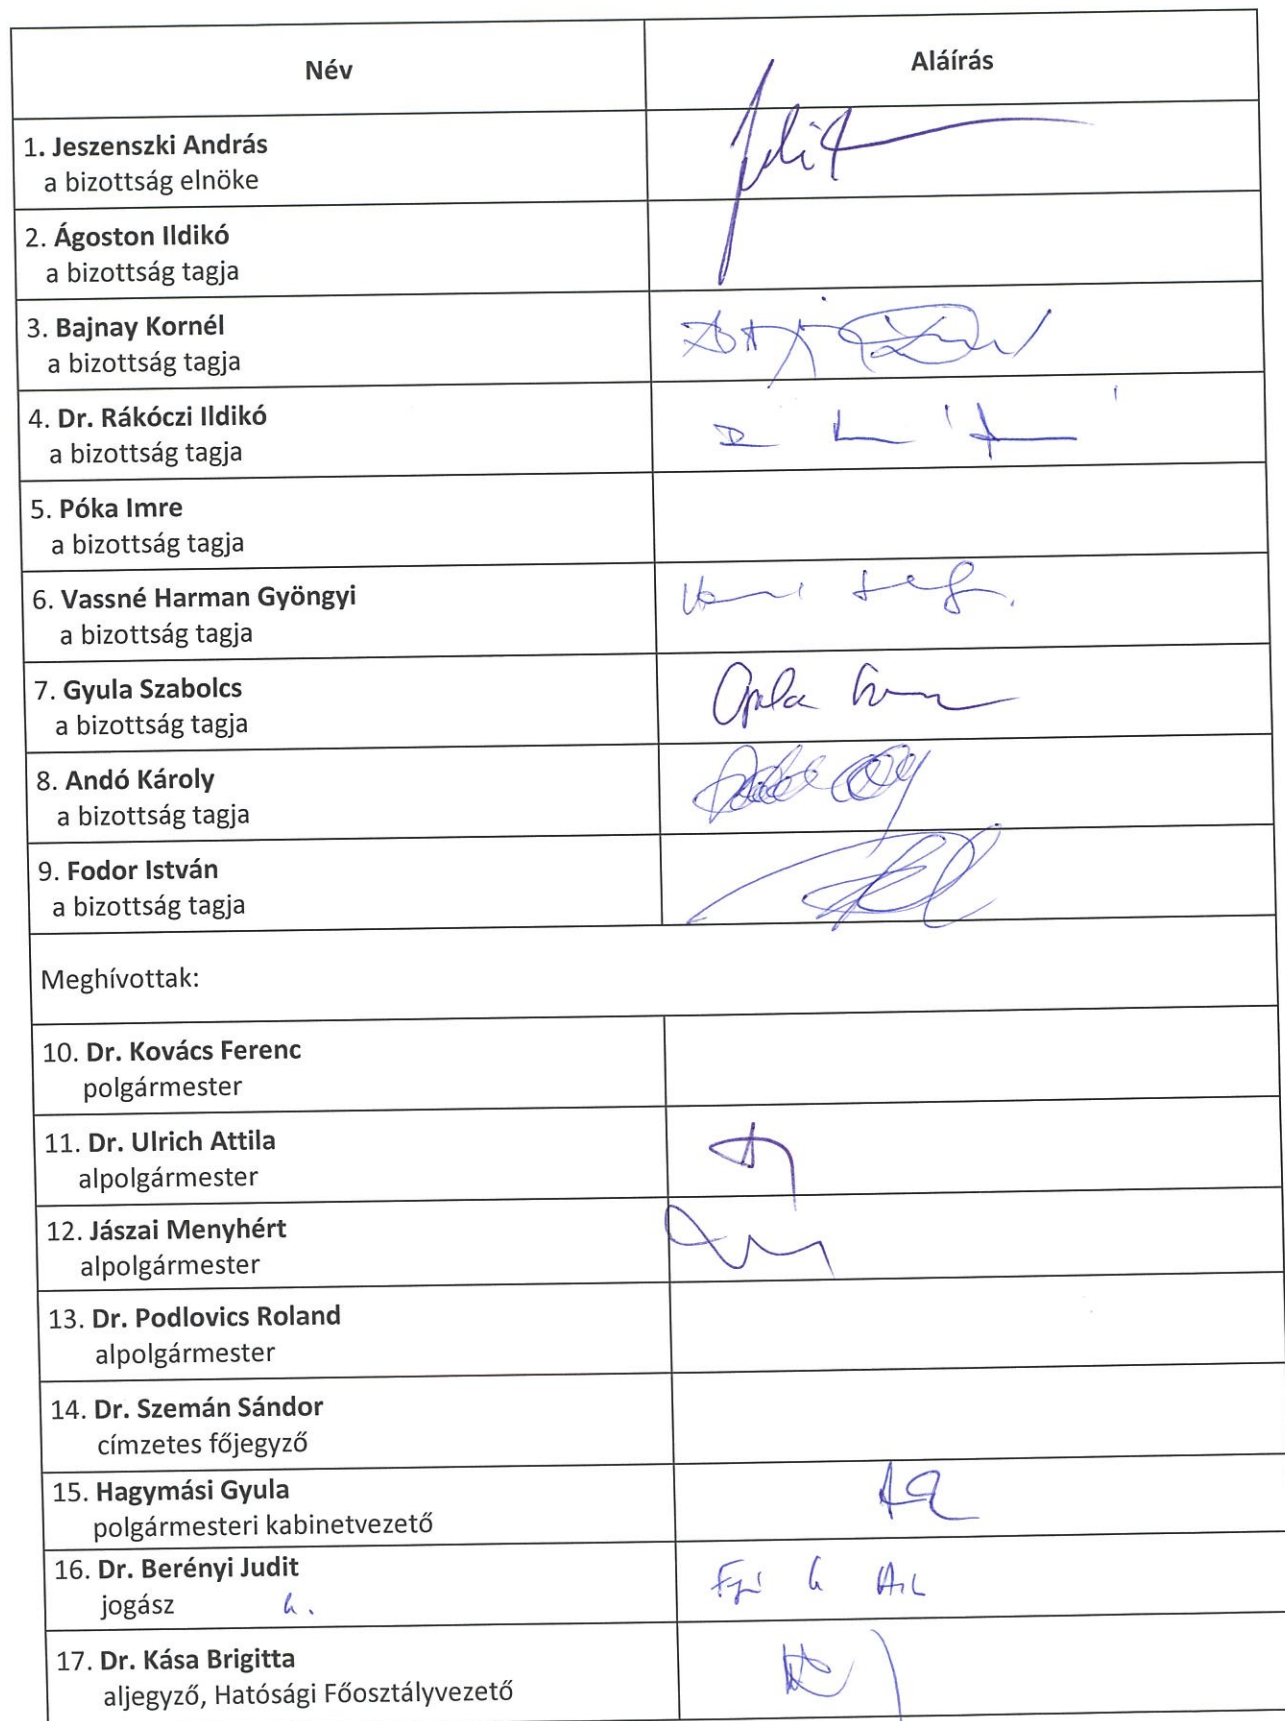 Név
Aláírás
1. Jeszenszki András
a bizottság elnöke
2. Ágoston Ildikó
a bizottság tagja
3. Bajnay Kornél
a bizottság tagja
4. Dr. Rákóczi Ildikó
a bizottság tagja
5. Póka Imre
a bizottság tagja
6. Vassné Harman Gyöngyi
a bizottság tagja
7. Gyula Szabolcs
a bizottság tagja
8. Andó Károly
a bizottság tagja
9. Fodor István
a bizottság tagja
Meghívottak:
10. Dr. Kovács Ferenc
polgármester
11. Dr. Ulrich Attila
alpolgármester
12. Jászai Menyhért
alpolgármester
13. Dr. Podlovics Roland
alpolgármester
14. Dr. Szemán Sándor
címzetes főjegyző
15. Hagymási Gyula
polgármesteri kabinetvezető
16. Dr. Berényi Judit
jogász
17. Dr. Kása Brigitta
aljegyző, Hatósági Főosztályvezető